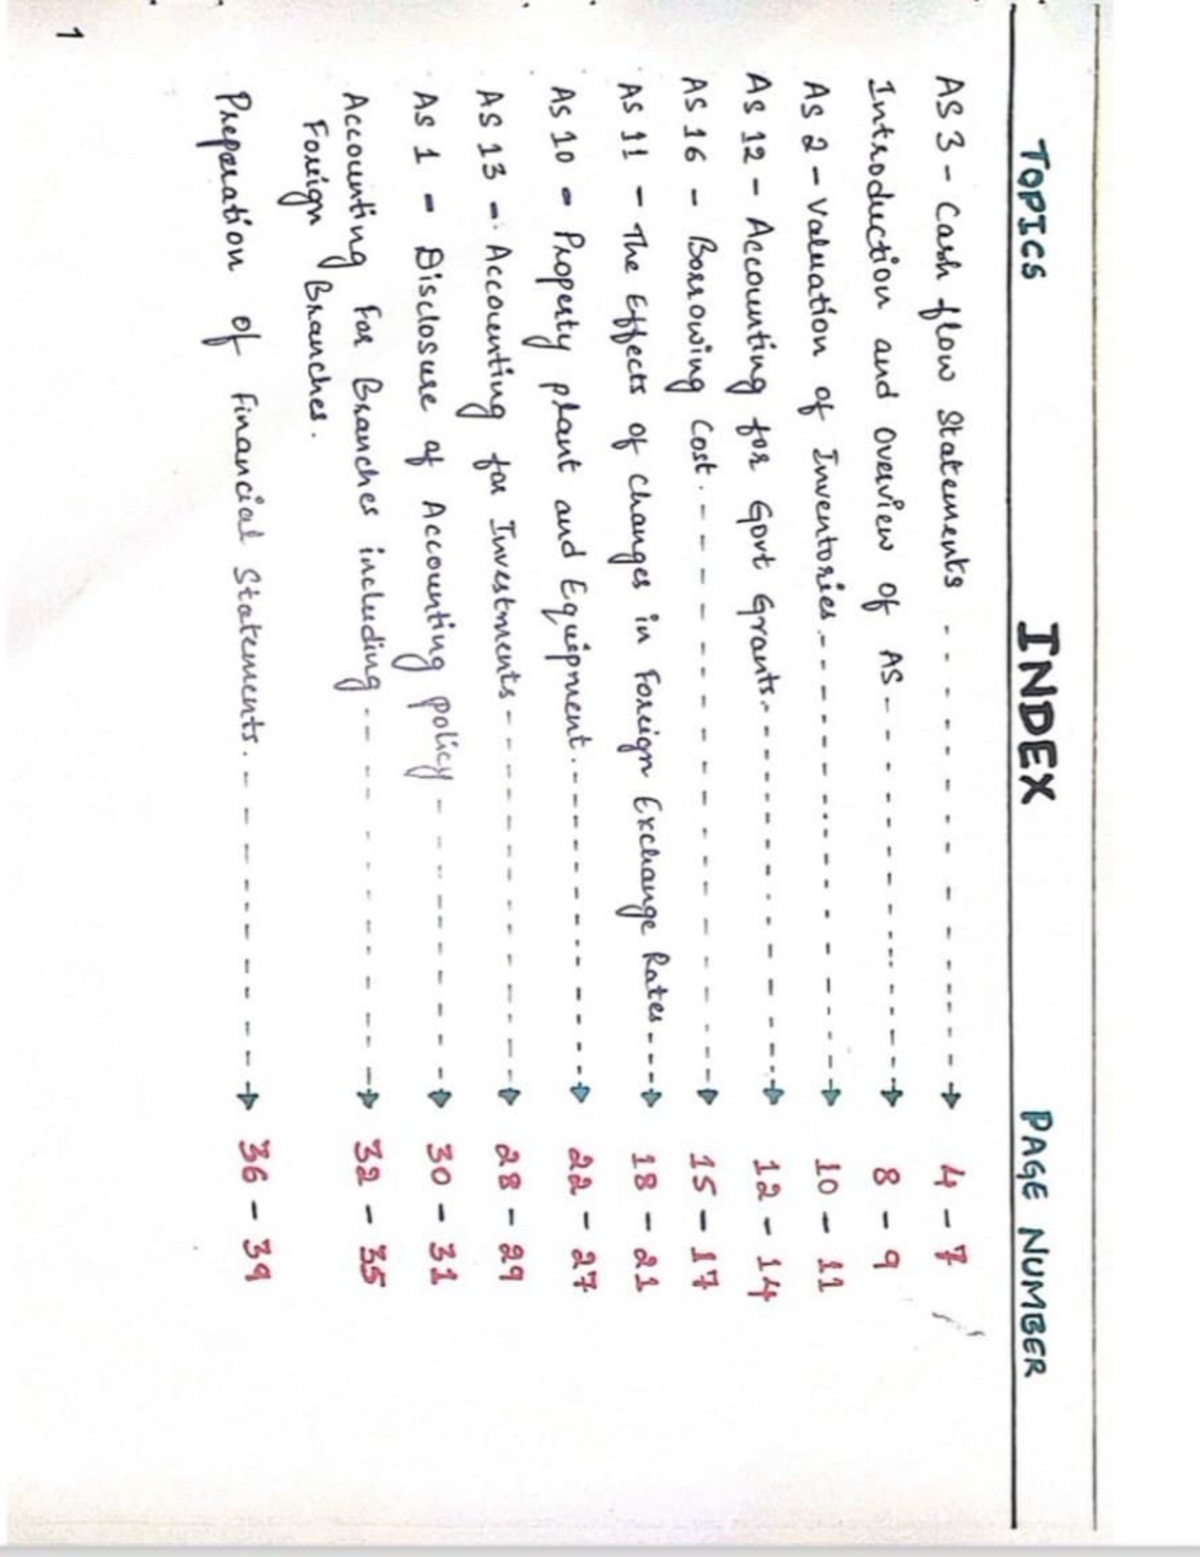 TOPICS INDEX PAGE NUMBER
AS 3 - Cash flow Statements 4 - 7
Introduction and Overview of AS 8 - 9
AS 2 - Valuation of Inventories 10 - 11
AS 12 - Accounting for Govt Grants. 12 - 14
AS 16 - Borrowing Cost. 15 - 17
AS 11 - The Effects of Changes in Foreign Exchange Rates 18 - 21
AS 10 - Property plant and Equipment. 22 - 27
AS 13 - Accounting for Investments 28 - 29
AS 1 - Disclosure of Accounting policy 30 - 31
Accounting For Branches including 32 - 35
Foreign Branches.
Preparation of Financial Statements. 36 - 39
1